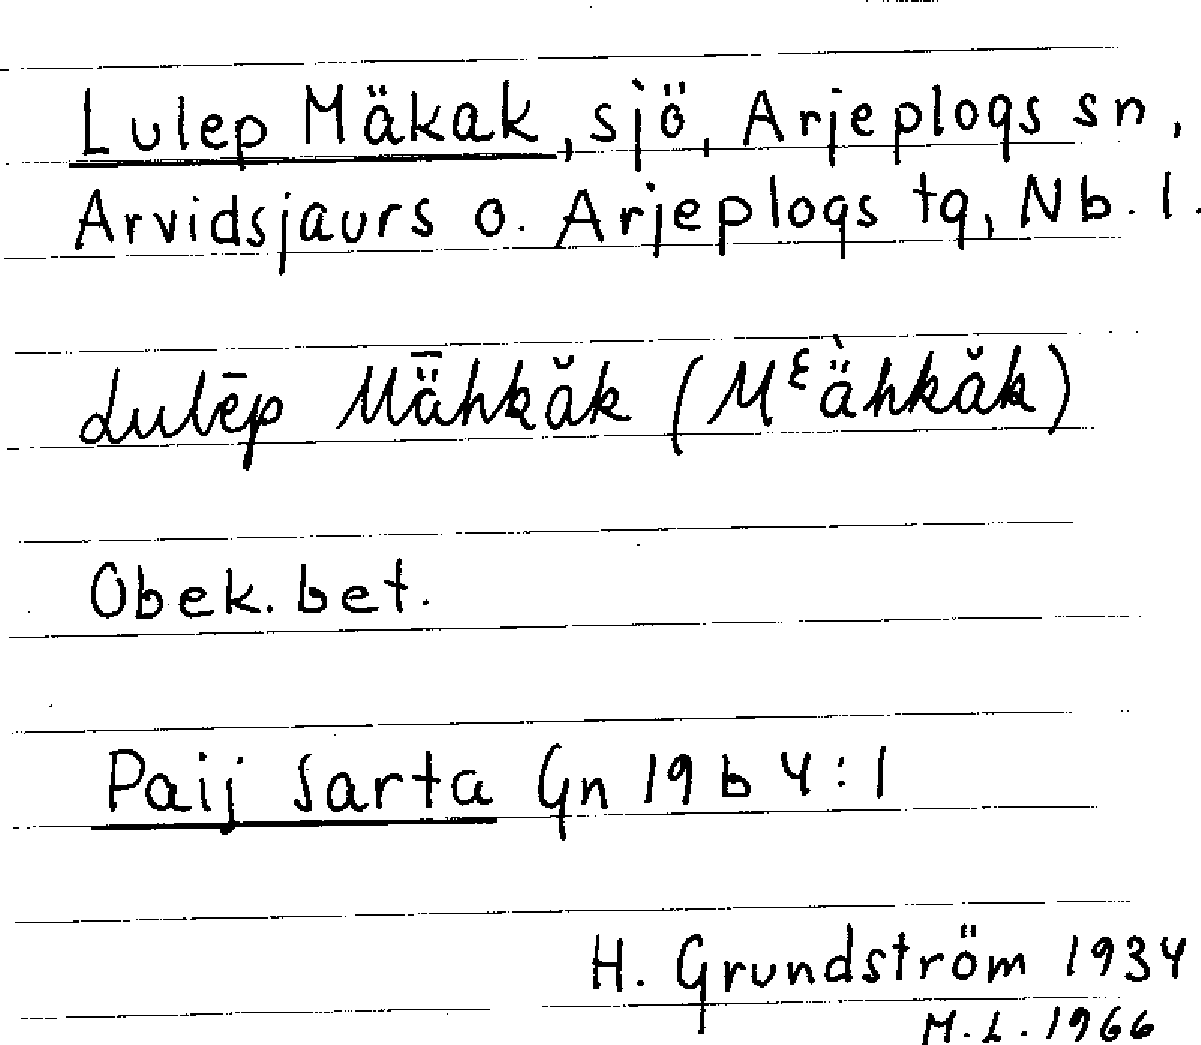 Lulep Mäkak, sjö, Arjeplogs sn,
Arvidsjaurs o. Arjeplogs tg, Nb. l.
Lulēp Mǟhkăk (Mᵋä̀hkăk)
Obek. bet.
Paij Sarta Gn 19 b 4:1
H. Grundström 1934
M.L. 1966